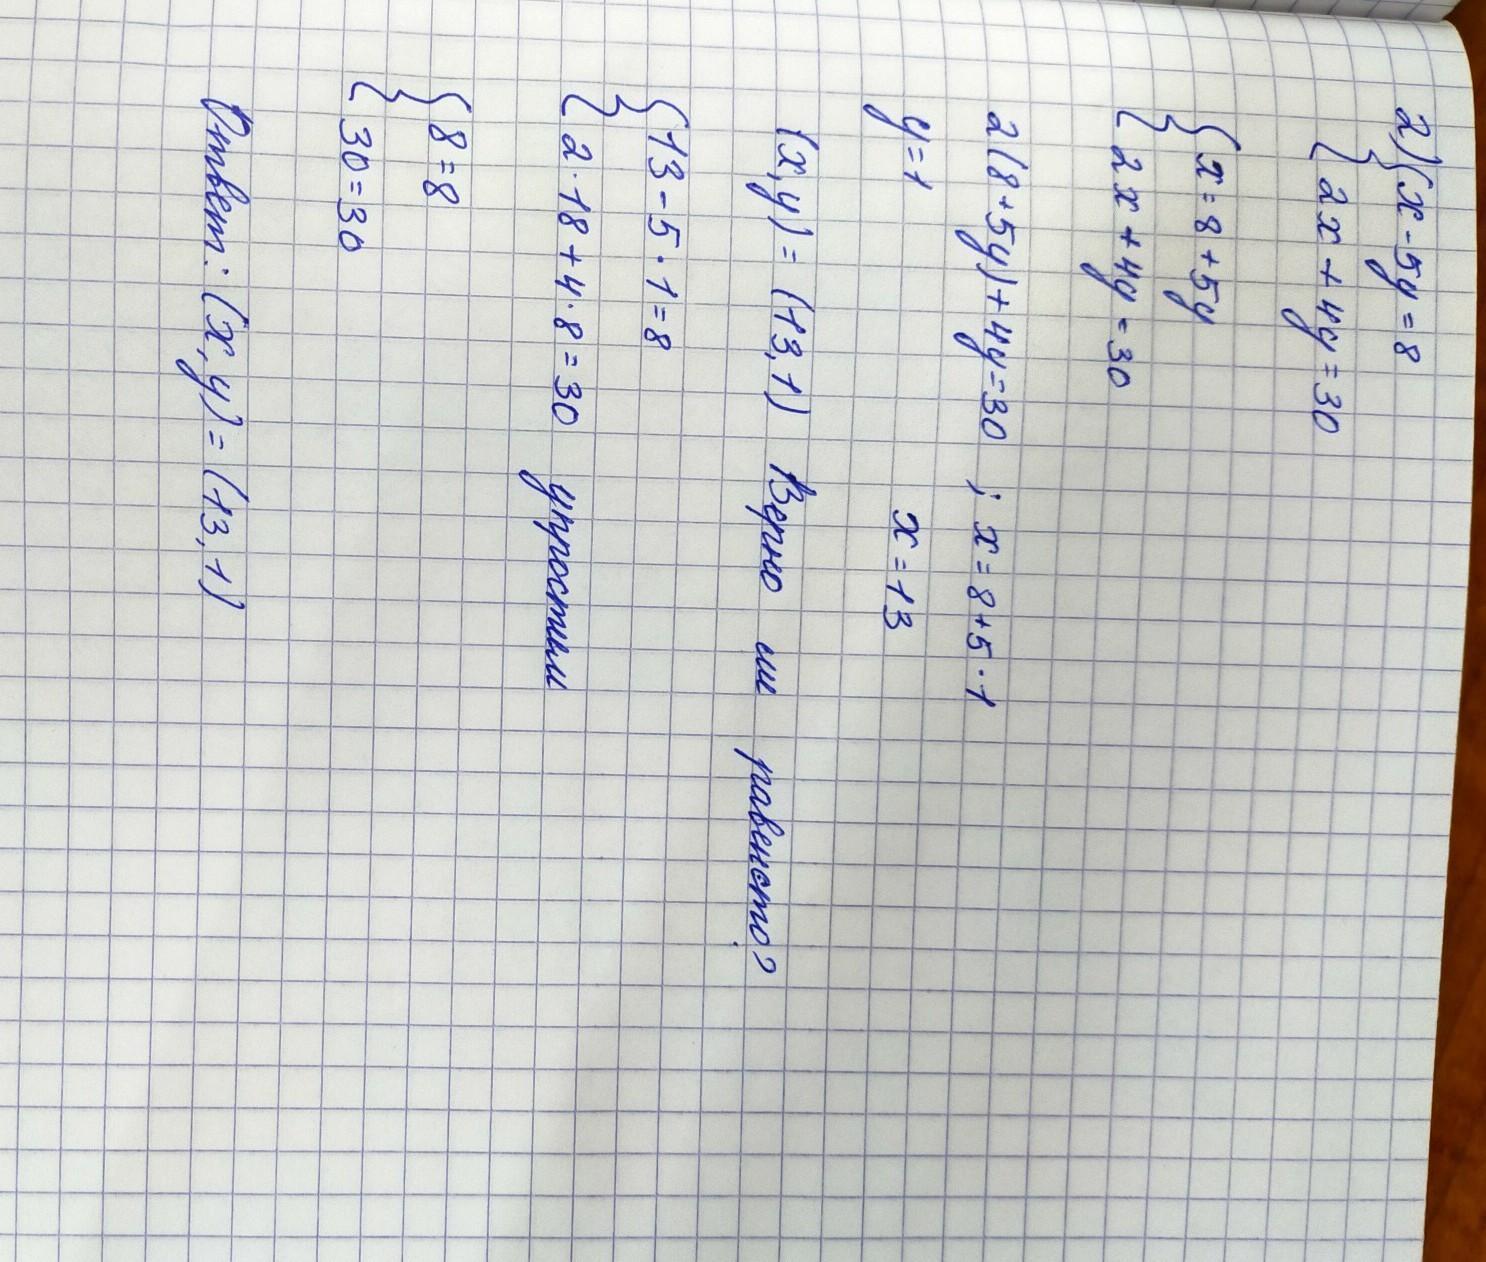 2) { x - 5y = 8
{ 2x + 4y = 30
{ x = 8 + 5y
{ 2x + 4y = 30
2(8 + 5y) + 4y = 30 ; x = 8 + 5 · 1
y = 1 x = 13
(x, y) = (13, 1) Верно ли равенсто?
{ 13 - 5 · 1 = 8
{ 2 · 18 + 4 · 8 = 30 упростим
{ 8 = 8
{ 30 = 30
Ответ: (x, y) = (13, 1)